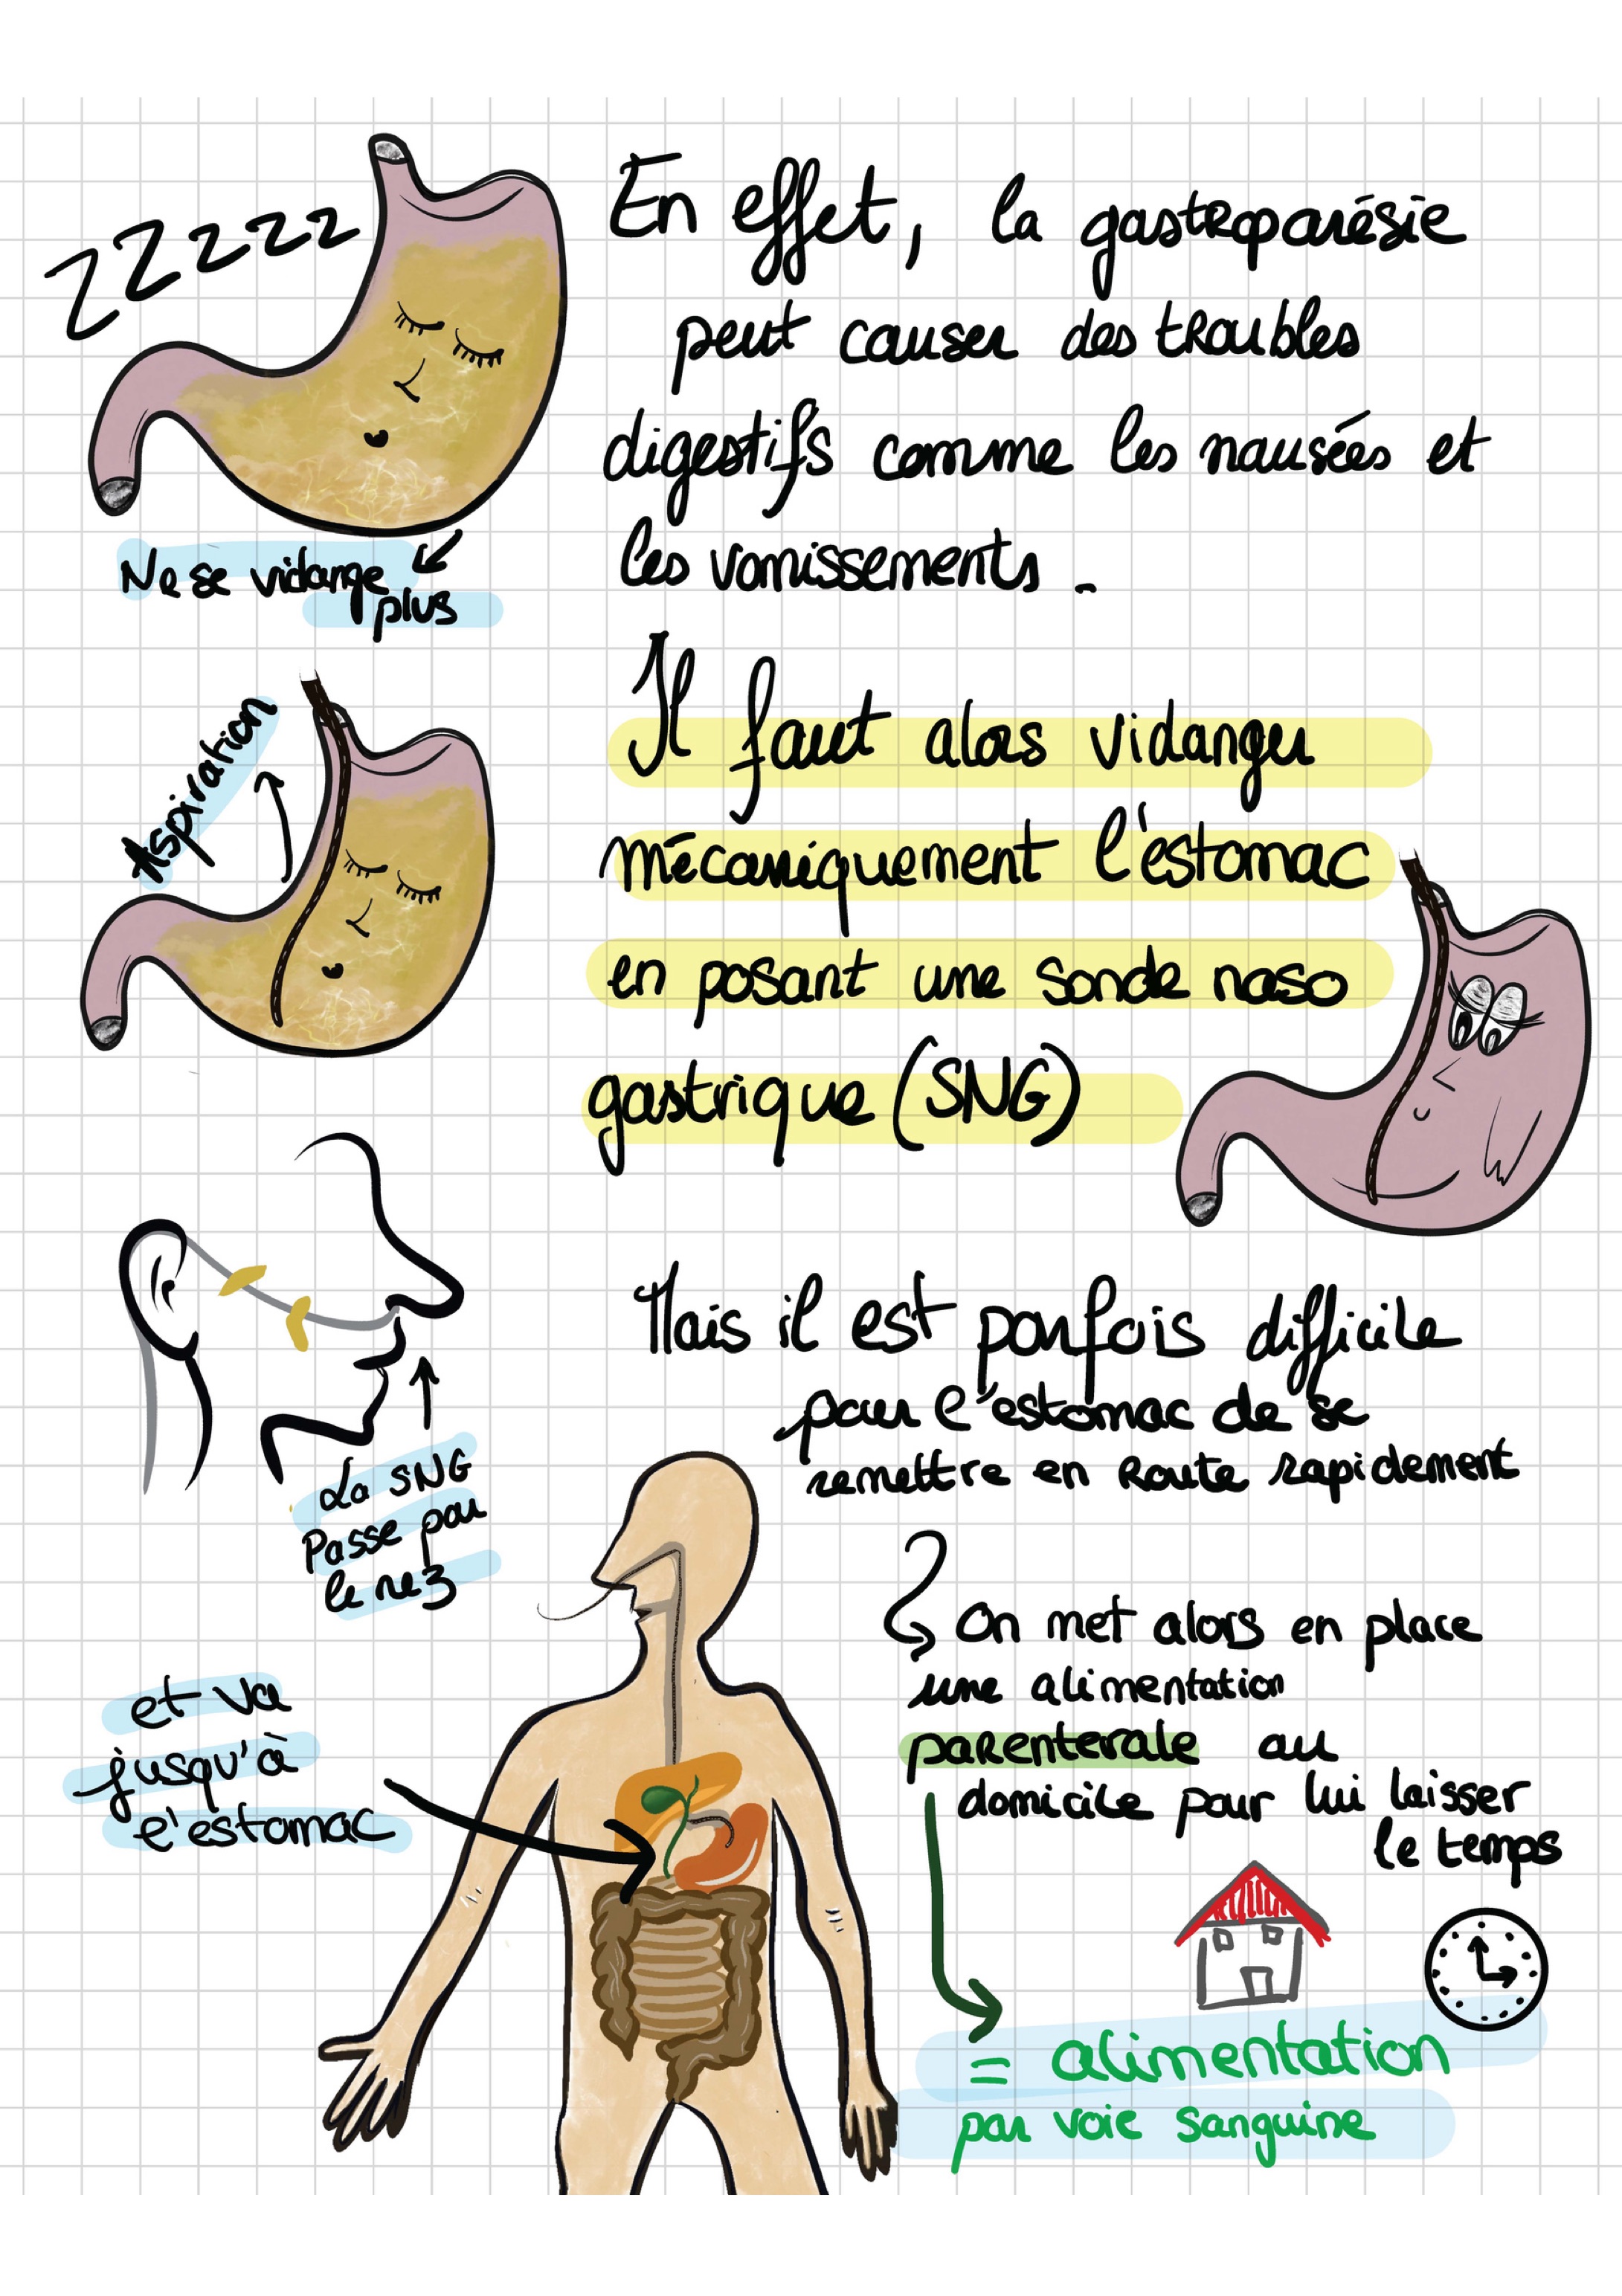 ZZzzz
En effet, la gastroparésie
peut causer des troubles
digestifs comme les nausées et
les vomissements.
Ne se vidange
plus
Aspiration
Il faut alors vidanger
mécaniquement l'estomac
en posant une sonde naso
gastrique (SNG)
Mais il est parfois difficile
pour l'estomac de se
remettre en route rapidement
La SNG
Passe par
le nez
et va
jusqu'à
l'estomac
On met alors en place
une alimentation
parenterale au
domicile pour lui laisser
le temps
= alimentation
par voie sanguine